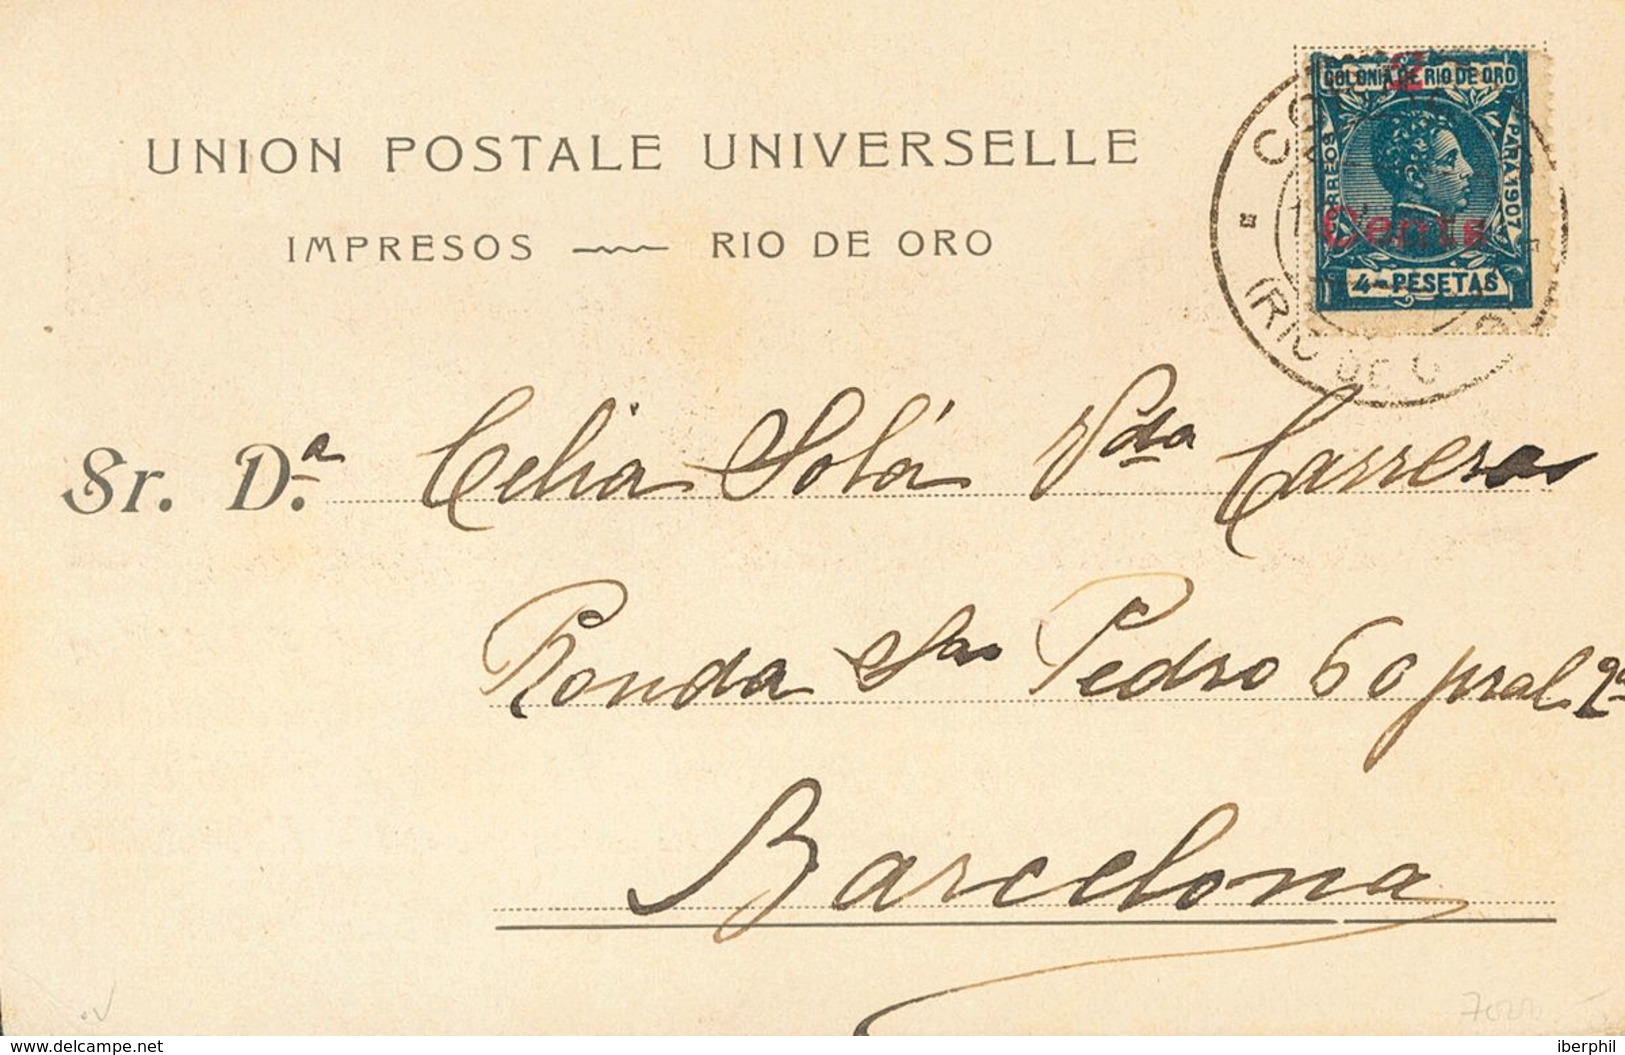 UNION POSTALE UNIVERSELLE
IMPRESOS — RIO DE ORO
COLONIA DE RIO DE ORO
CORREOS
PARA 1907
Cents
4-PESETAS
(RIO DE O
Sr. D.ª Celia Solá Vda Carreras
Ronda San Pedro 60 pral 2ª
Barcelona
delcampe.net
iberphil